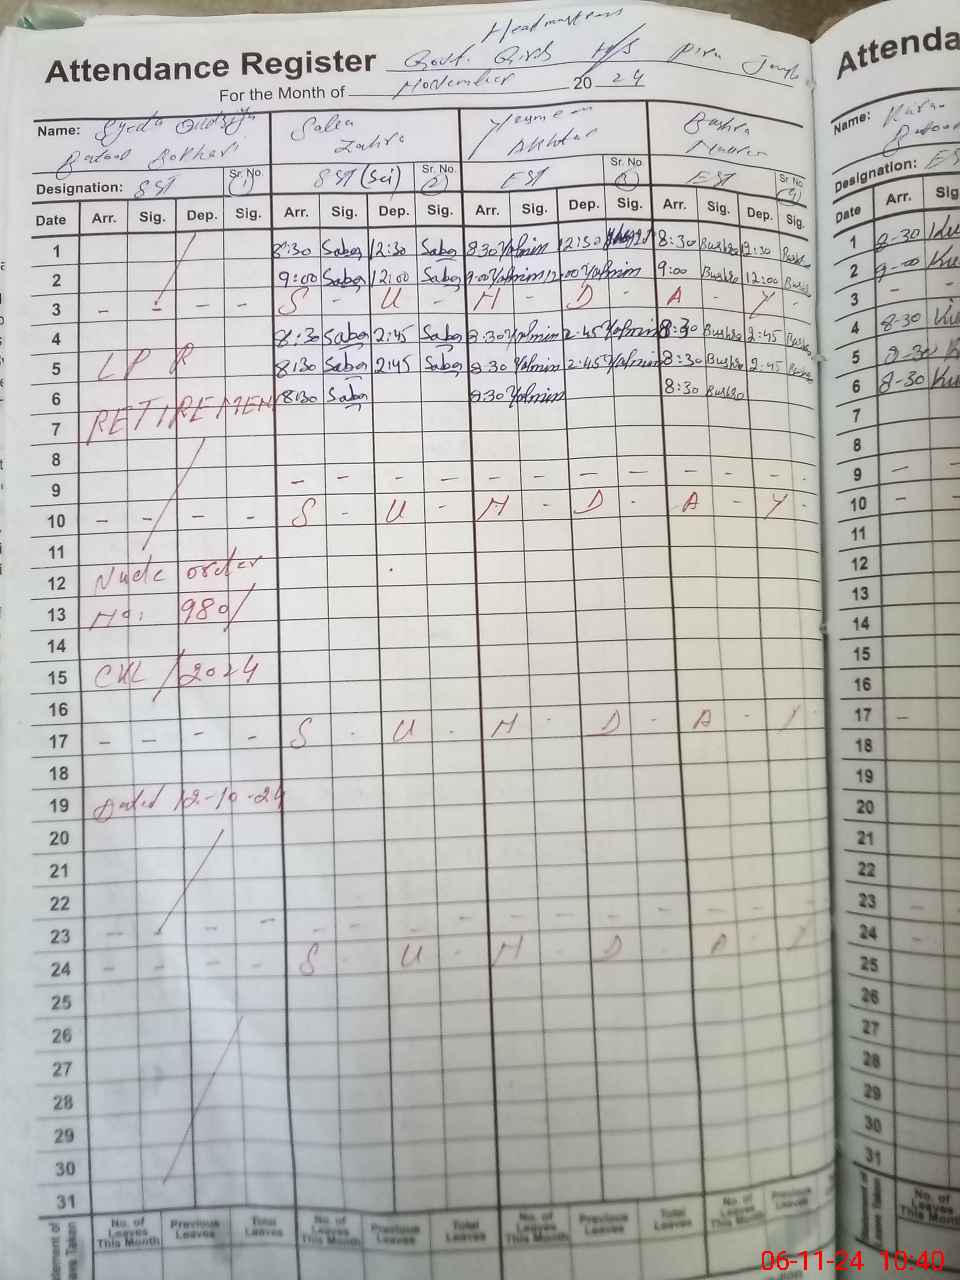 Headmistress
Attendance Register Govt. Girls H/S Piru
For the Month of November 2024
Name: Syeda Batool Bokhari
Zahra
Yasmeen Akhtar
Bushra
Designation: SST Sr. No. (1) SST (Sci) Sr. No. (2) EST Sr. No. EST Sr. No. (4)
Date Arr. Sig. Dep. Sig. Arr. Sig. Dep. Sig. Arr. Sig. Dep. Sig. Arr. Sig. Dep. Sig.
1 8:30 Saba 12:30 Saba 8:30 Yasmin 12:30 8:30 Bushra 12:30 Bushra
2 9:00 Saba 12:00 Saba 9:00 Yasmin 12:00 Yasmin 9:00 Bushra 12:00 Bushra
3 - - - - S - U - N - D - A - Y -
4 8:30 Saba 2:45 Saba 8:30 Yasmin 2:45 Yasmin 8:30 Bushra 2:45 Bushra
5 L P R 8:30 Saba 2:45 Saba 8:30 Yasmin 2:45 Yasmin 8:30 Bushra 2:45 Bushra
6 8:30 Saba 8:30 Yasmin 8:30 Bushra
7 RETIREMEN
8
9 - - - - - - - - - - - -
10 - - - - S - U - N - D - A - Y -
11
12 Nude order
13 No: 980/
14
15 CKL/2024
16
17 - - - - S - U - N - D - A - Y
18
19 Dated 12-10-24
20
21
22
23 - - - - - - - - - -
24 - - - - S - U - N - D - A - Y
25
26
27
28
29
30
31
No. of Leaves This Month Previous Leaves Total Leaves No. of Leaves This Month Previous Leaves Total Leaves No. of Leaves This Month Previous Leaves Total Leaves No. of Leaves This Month Previous Leaves
Attenda
Name:
Designation: ES
Date Arr. Sig.
1 8-30
2 9-00
3 - -
4 8-30
5 8-30
6 8-30
7
8
9 - -
10 - -
11
12
13
14
15
16
17 -
18
19
20
21
22
23 -
24 -
25
26
27
28
29
30
31
No. of Leaves This Month
06-11-24 10:40